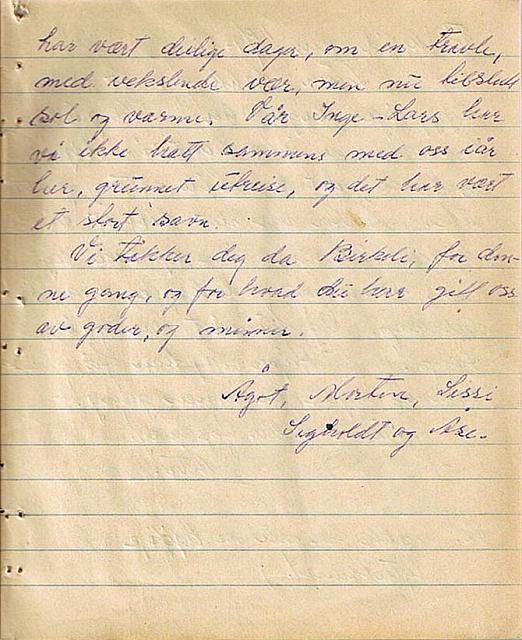 har vært deilige dager, om en travle,
med vekslende vær, men nu tilslutt
sol og varme. Vår Inge-Lars har
vi ikke hatt sammens med oss iår
her, grunnet utreise, og det har vært
et stort savn.
Vi takker deg da Birkeli, for den-
ne gang, og for hvad du har gitt oss
av goder, og minner.
Ågot, Morten, Lissi
og Åse.